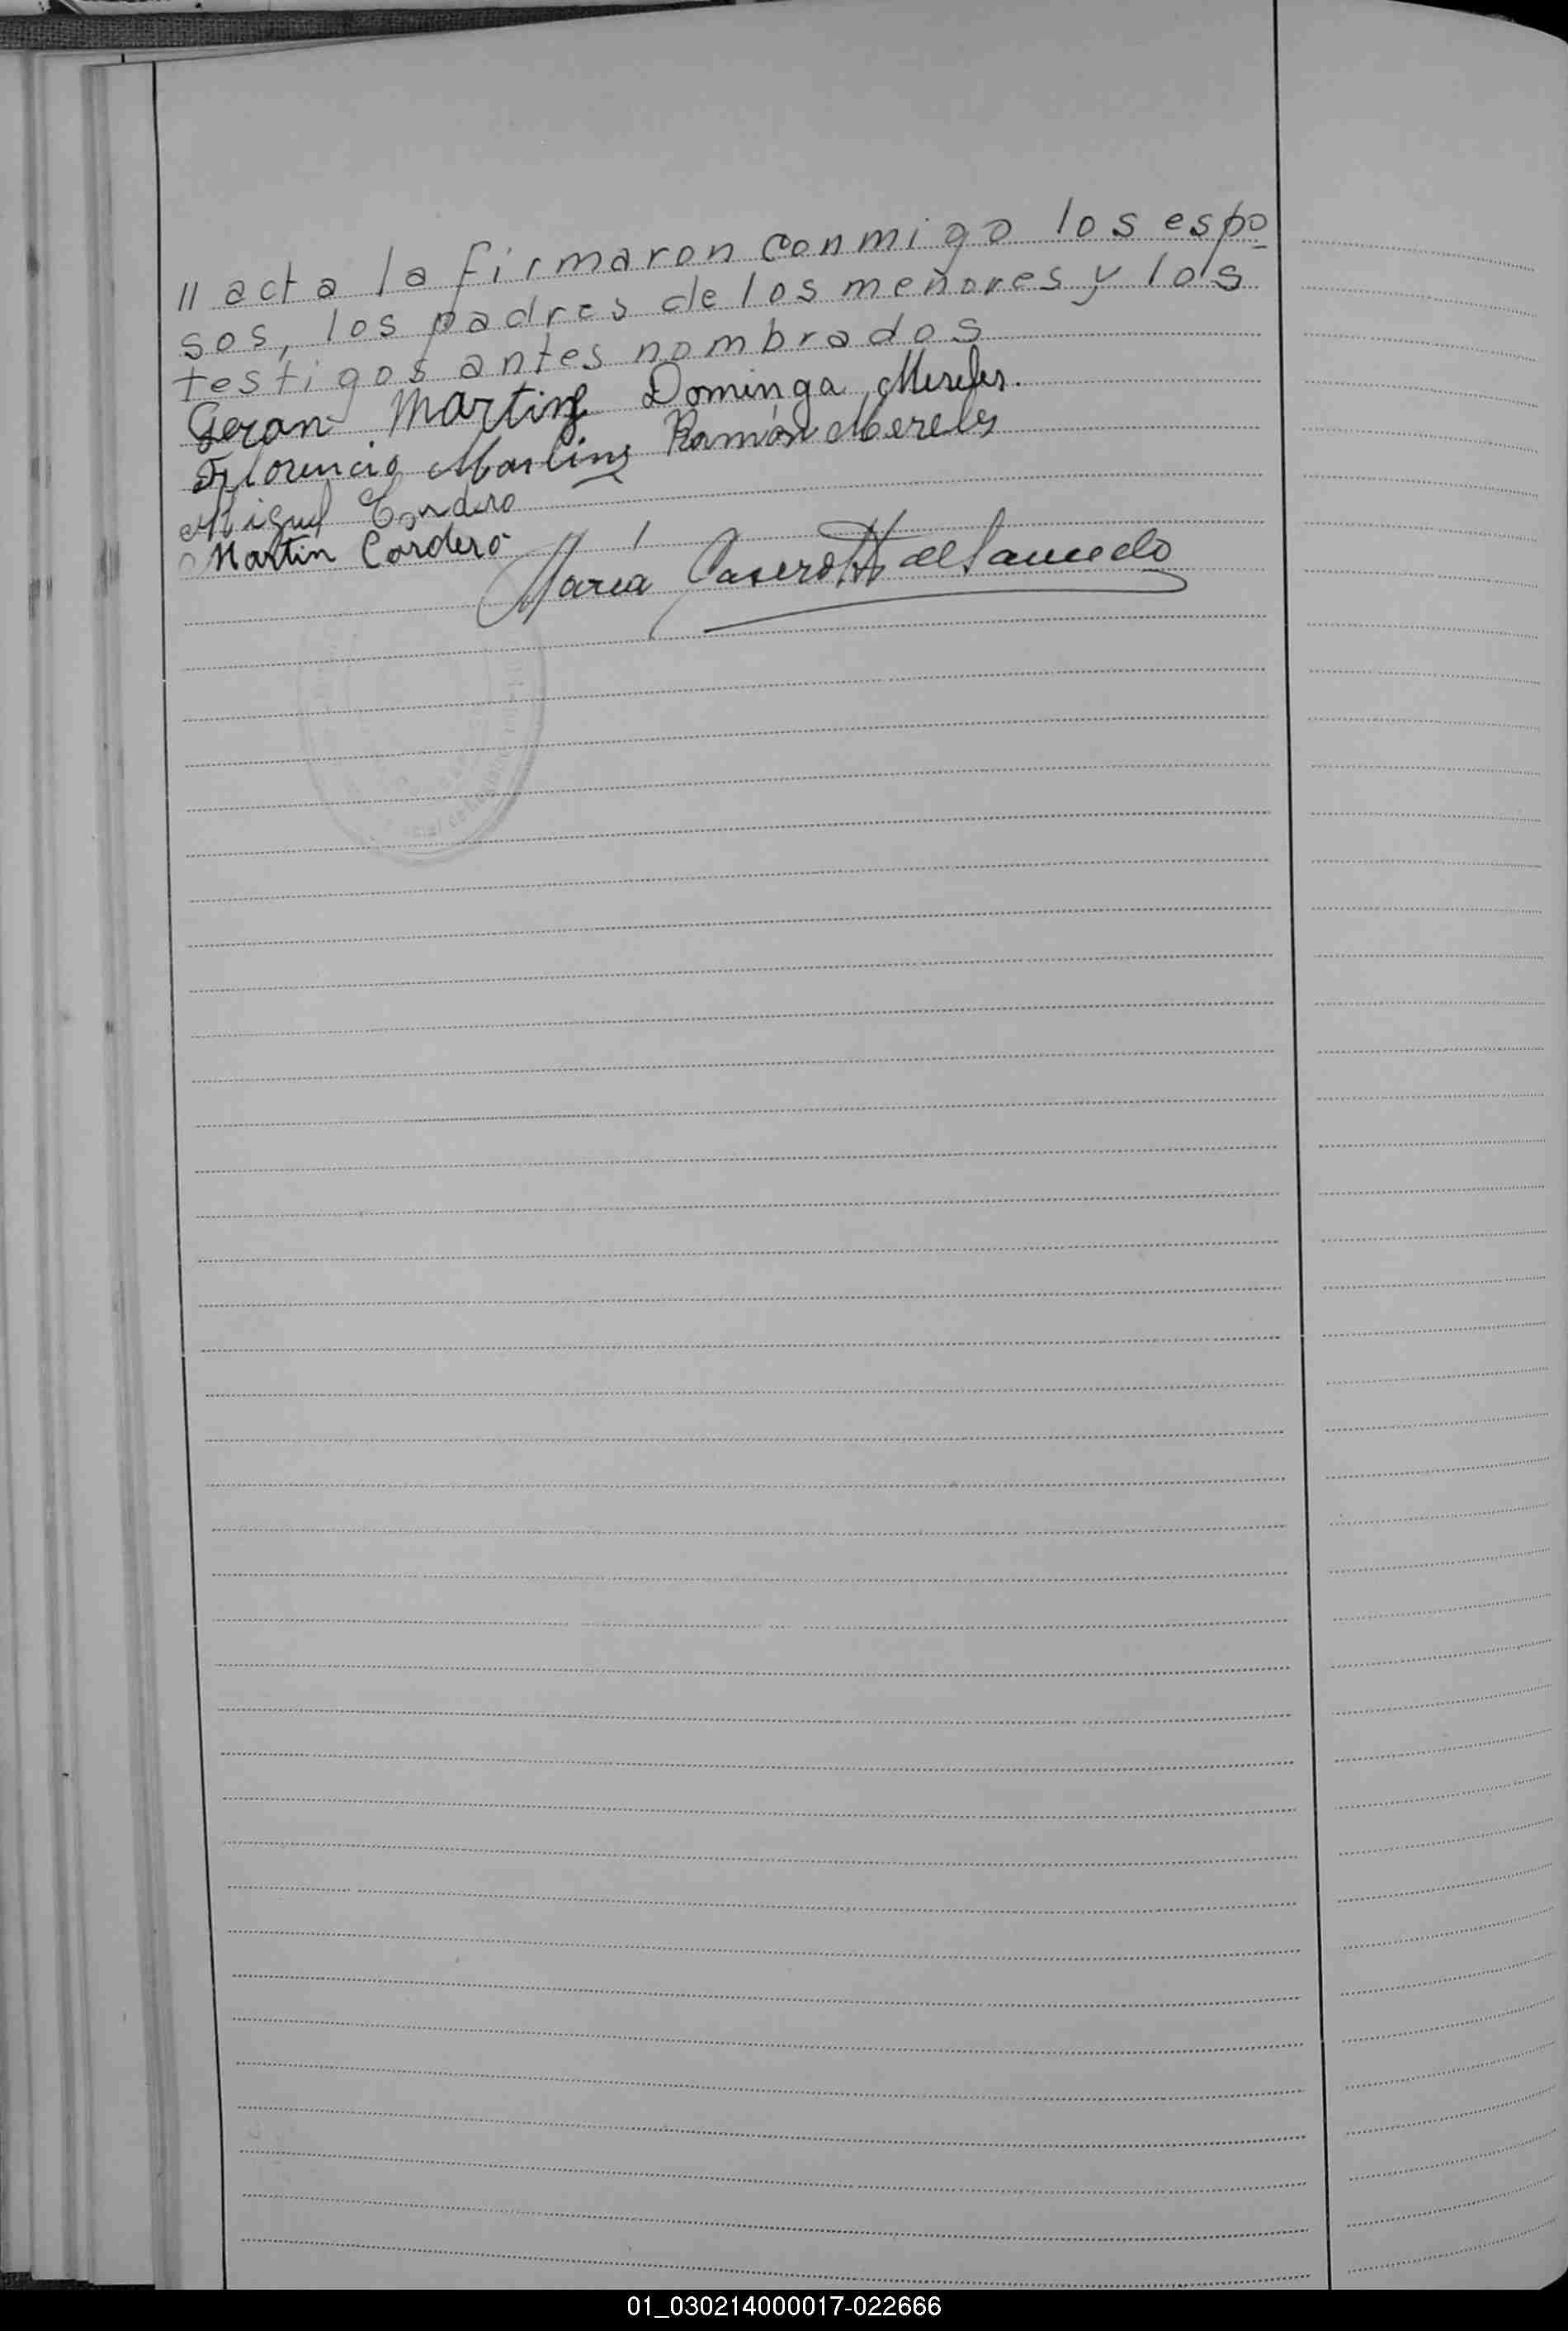 // acta la firmaron conmigo los espo
sos, los padres de los menores y los
testigos antes nombrados
Geran Martinz Dominga Mereles.
Florencio Martinz Ramón Mereles
Miguel Cordero
Martin Cordero
María
01_030214000017-022666